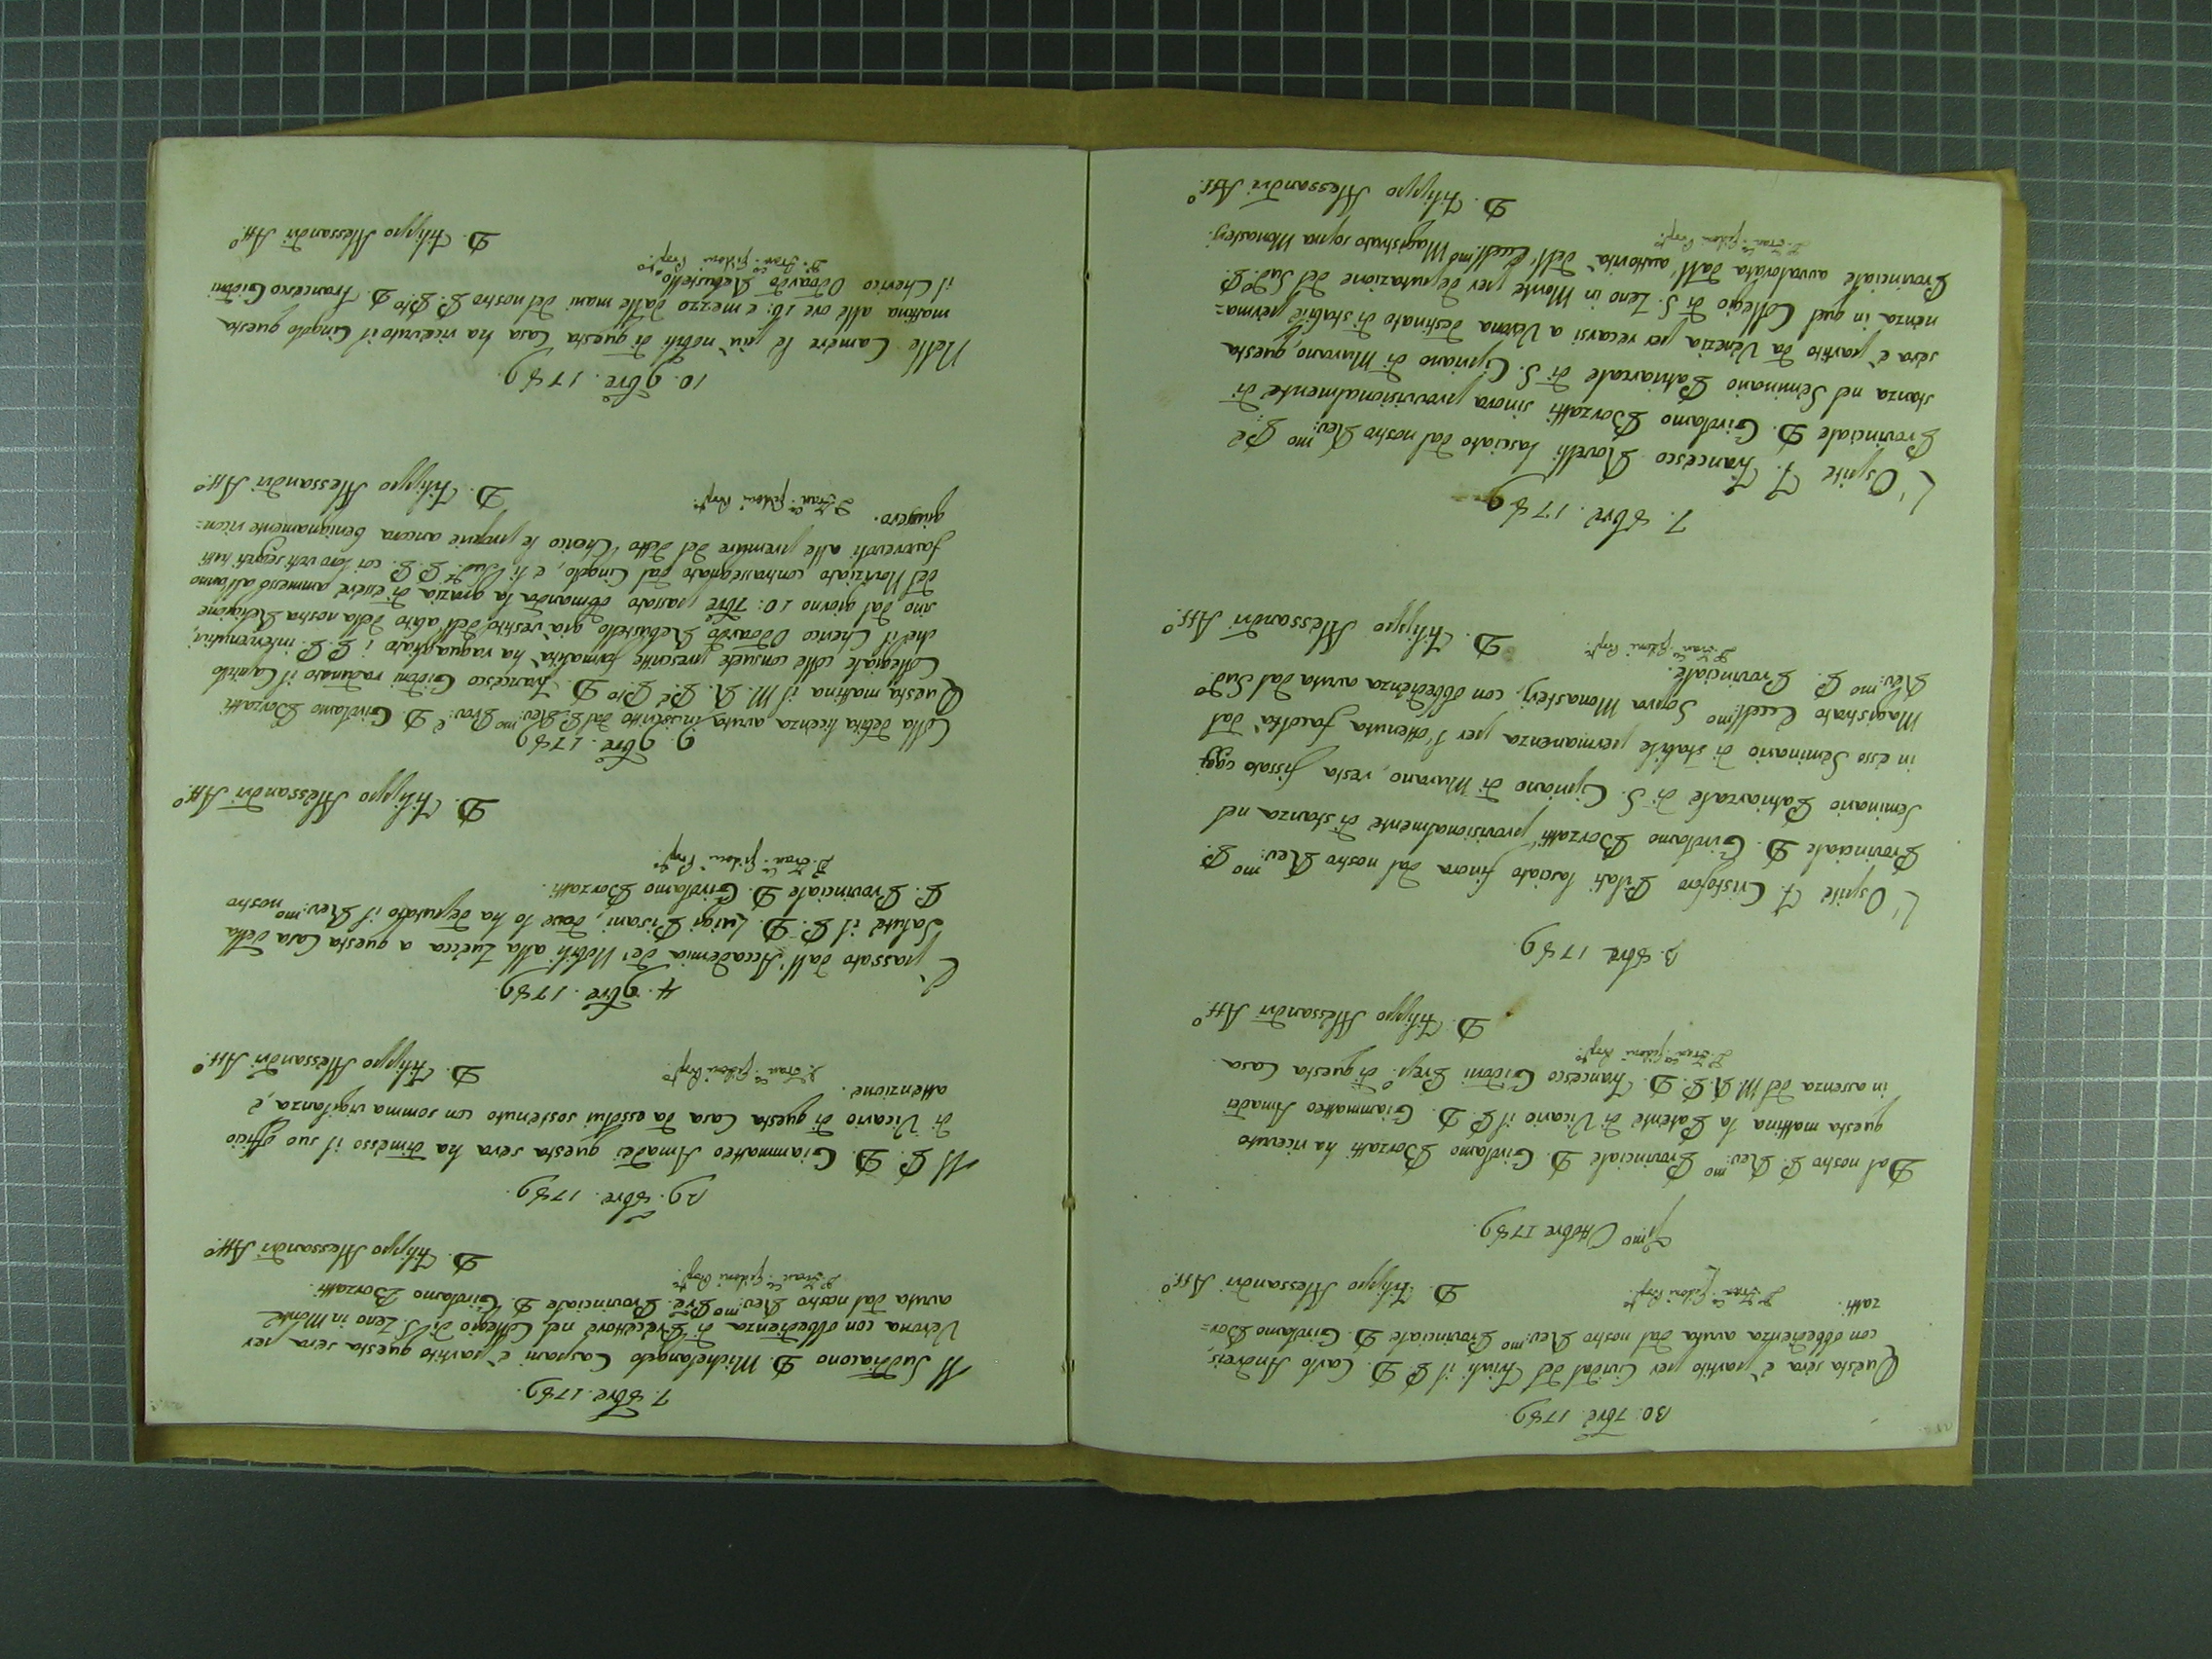 30. 7bre 1789.
Questa sera è partito per Cividal del Friuli il P. D. Carlo Andreis
con obbedienza avuta dal nostro Rev:mo Provinciale D. Girolamo Bor=
zatti.
D. Fran:co Gidoni Prep.to
D. Filippo Alessandri Att.o
P:mo Ottobre 1789.
Dal nostro P. Rev:mo Provinciale D. Girolamo Borzatti ha ricevuto
questa mattina la Patente di Vicario il P. D. Giammatteo Amadei
in assenza del M. R. P. D. Francesco Gidoni Prep.o di questa Casa.
D. Fran:co Gidoni Prep.to
D. Filippo Alessandri Att.o
3. 8bre 1789.
L'Ospite F. Cristoforo Pilati lasciato finora dal nostro Rev:mo P.
Provinciale D. Girolamo Borzatti provisionalmente di stanza nel
Seminario Patriarcale di S. Cipriano di Murano, resta fissato oggi
in esso Seminario di stabile permanenza per l'ottenuta facoltà dal
Magistrato Eccell:mo Sopra Monasterj, con obbedienza avuta dal Sud.o
Rev:mo P. Provinciale.
D. Fran:co Gidoni Prep.to
D. Filippo Alessandri Att.o
7. 8bre. 1789.
L'Ospite F. Francesco Rovelli lasciato dal nostro Rev:mo P.e
Provinciale D. Girolamo Borzatti sinora provvisionalmente di
stanza nel Seminario Patriarcale di S. Cipriano di Murano, questa
sera è partito da Venezia per recarsi a Verona destinato di stabile perma=
nenza in quel Collegio di S. Zeno in Monte per deputazione del Sud.o P.
Provinciale avvalorata dall'auttorità dell'Eccell:mo Magistrato sopra Monasterj.
D. Fran:co Gidoni Prep.to
D. Filippo Alessandri Att.o
7. 8bre. 1789.
Il Suddiacono D. Michelangelo Caspani è partito questa sera per
Verona con obbedienza di Precettore nel Collegio di S. Zeno in Monte
avuta dal nostro Rev:mo Pre. Provinciale D. Girolamo Borzatti.
D. Fran:co Gidoni Prep.to
D. Filippo Alessandri Att.o
29. 8bre. 1789.
Il P. D. Giammatteo Amadei questa sera ha dimesso il suo officio
di Vicario di questa Casa da essolui sostenuto con somma vigilanza, e
attenzione.
D. Fran:co Gidoni Prep.to
D. Filippo Alessandri Att.o
4. 9bre. 1789.
È passato dall'Accademia de' Nobili alla Zuecca a questa Casa della
Salute il P. D. Luigi Pisani, dove lo ha deputato il Rev:mo nostro
P. Provinciale D. Girolamo Borzatti.
D. Fran:co Gidoni Prep.to
D. Filippo Alessandri Att.o
9. 9bre. 1789
Colla debita licenza avuta in iscritto dal P. Rev:mo Prov:e D. Girolamo Borzatti
Questa mattina il M. R. P.e P.to D. Francesco Gidoni radunato il Capitolo
Collegiale colle consuete prescritte formalità ha ragguagliato i P. P. intervenutivi,
che il Cherico Odoardo Rebustello già vestito dell'abito della nostra Religione
sino dal giorno 10: 7bre passato domanda la grazia di essere ammesso all'anno
del Noviziato contrassegnato dal Cingolo, e li Sud.i P. P. coi loro voti segreti tutti
favorevoli alle premure del detto Cherico le proprie ancora benignamente vicen=
giunsero.
D. Fran:co Gidoni Prep.to
D. Filippo Alessandri Att.o
10. 9bre. 1789.
Nelle Camere le più nobili di questa Casa ha ricevuto il Cingolo questa
mattina alle ore 16: e mezzo dalle mani del nostro P. P.to D. Francesco Gidoni
il Cherico Odoardo Rebustello.
D. Fran:co Gidoni Prep.to
D. Filippo Alessandri Att.o